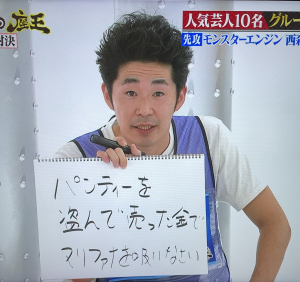 の 魔王
対決
人気芸人10名 グルー
先攻 モンスターエンジン 西
パンティーを
盗んで売った金で
マリファナを吸いなさい